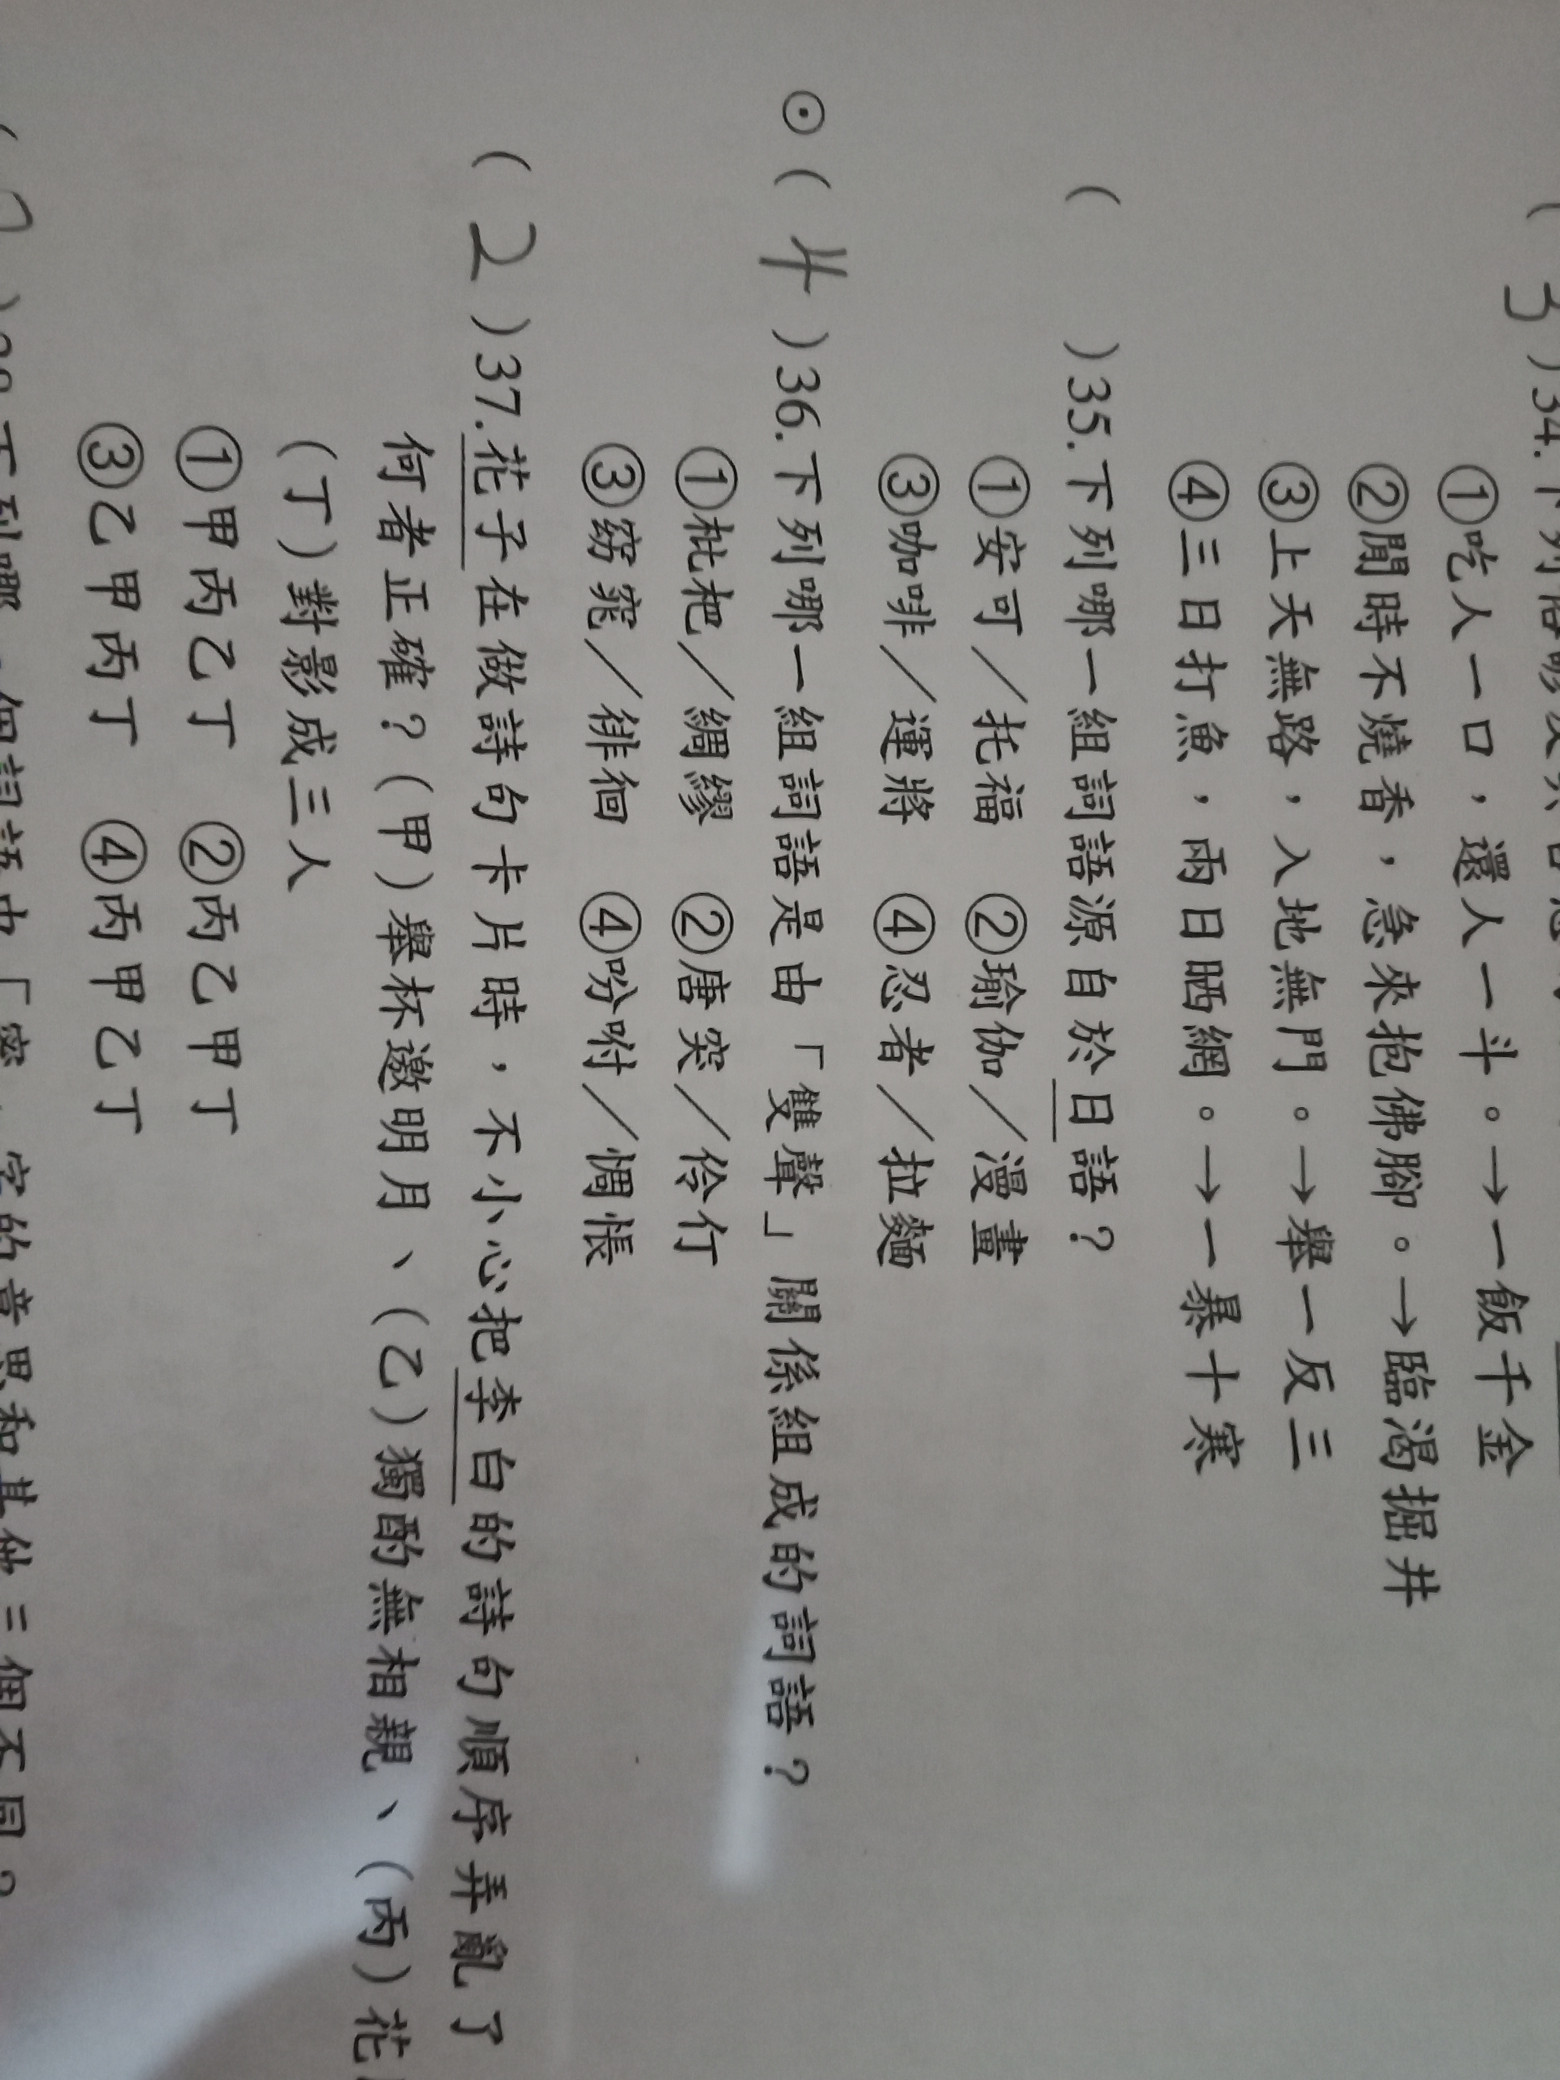 ( 3 )34.下列
①吃人一口，還人一斗。→一飯千金
②閒時不燒香，急來抱佛腳。→臨渴掘井
③上天無路，入地無門。→舉一反三
④三日打魚，兩日晒網。→一暴十寒
(　　)35.下列哪一組詞語源自於日語？
①安可／托福　②瑜伽／漫畫
③咖啡／運將　④忍者／拉麵
⊙( 4 )36.下列哪一組詞語是由「雙聲」關係組成的詞語？
①枇杷／綢繆　②唐突／伶仃
③窈窕／徘徊　④吩咐／惆悵
( 2 )37.花子在做詩句卡片時，不小心把李白的詩句順序弄亂了
何者正確？(甲)舉杯邀明月、(乙)獨酌無相親、(丙)花
(丁)對影成三人
①甲丙乙丁　②丙乙甲丁
③乙甲丙丁　④丙甲乙丁
下列哪一個詞語中「密」字的意思和其他三個不同？